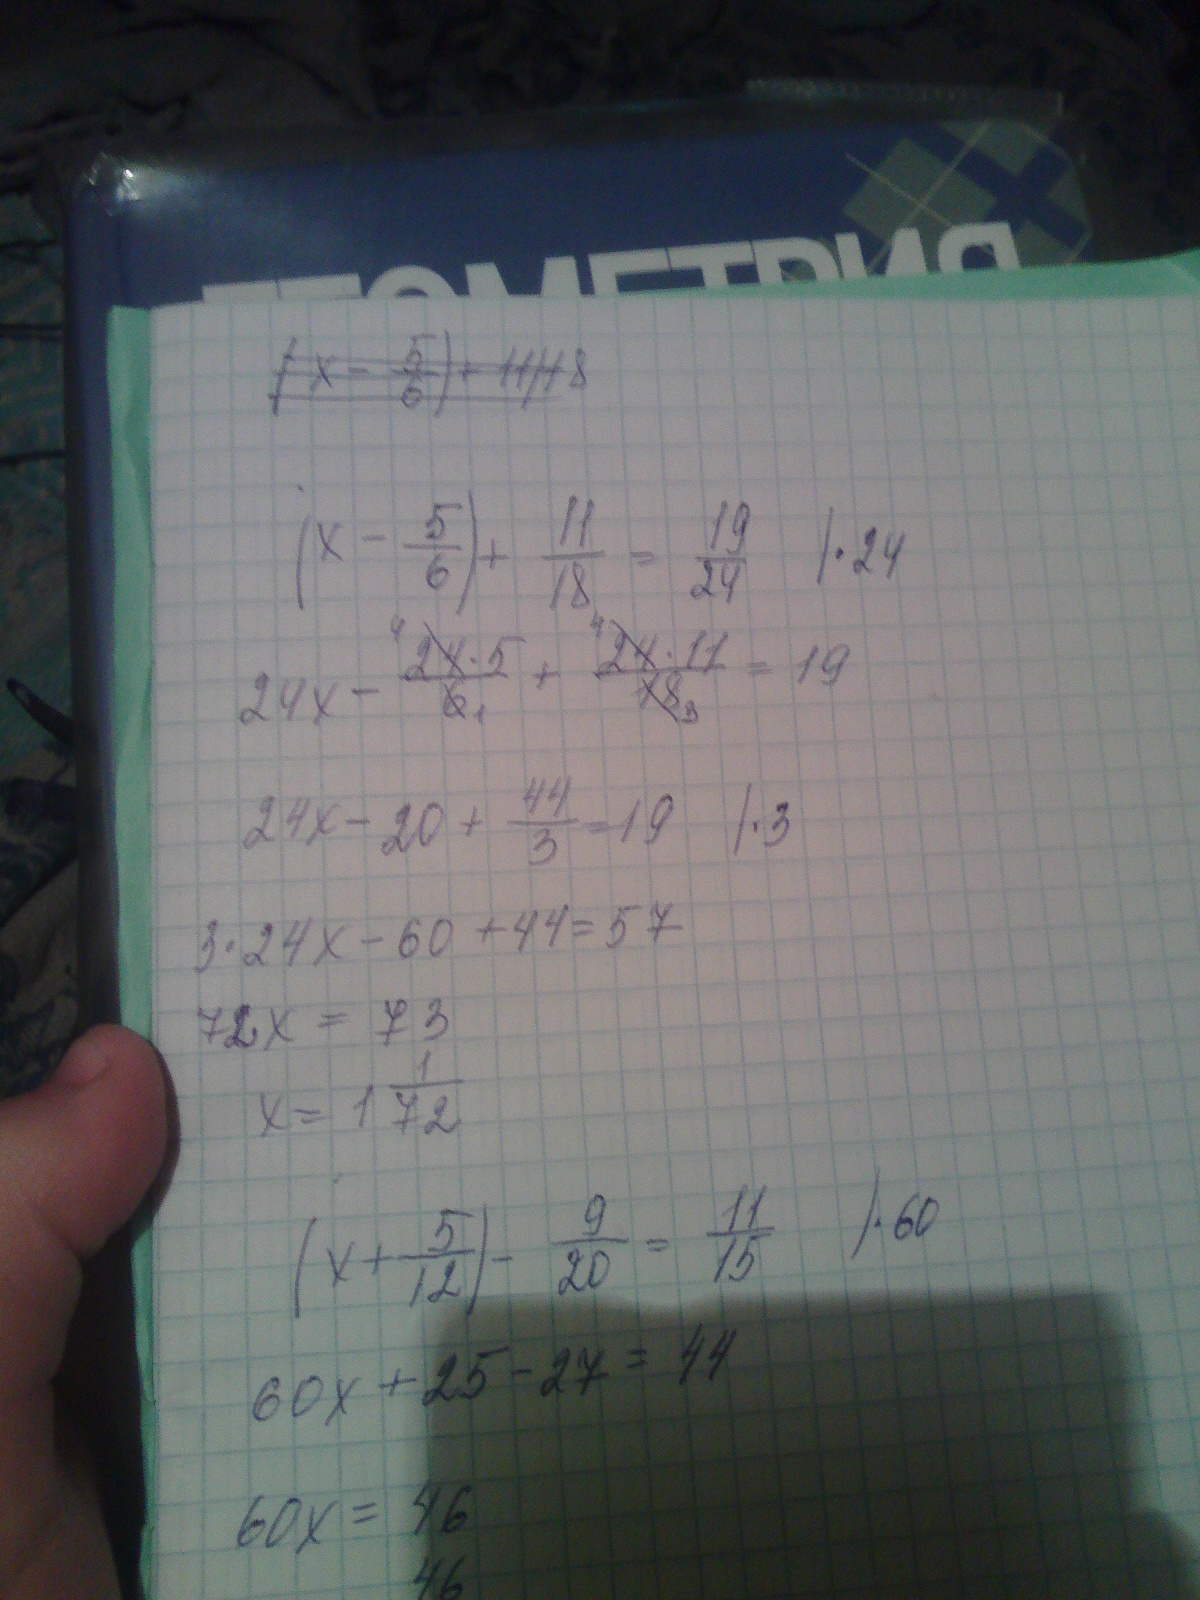 ГЕОМЕТРИЯ
(x - 5/6) + 11/18
(x - 5/6) + 11/18 = 19/24 |·24
24x - 24·5/6 + 24·11/18 = 19
24x - 20 + 44/3 = 19 |·3
3·24x - 60 + 44 = 57
72x = 73
x = 1 1/72
(x + 5/12) - 9/20 = 11/15 |·60
60x + 25 - 27 = 44
60x = 46
46